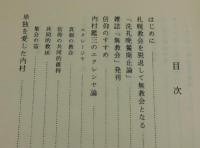 目次
はじめに
札幌教会を脱退して無教会となる
「洗礼晩餐廃止論」
雑誌「無教会」発刊
信仰のすすめ
内村鑑三のエクレシヤ論
エクレージヤ
真個の教会
信仰の共同的維持
共同的教拯
集会の益
単独を愛した内村